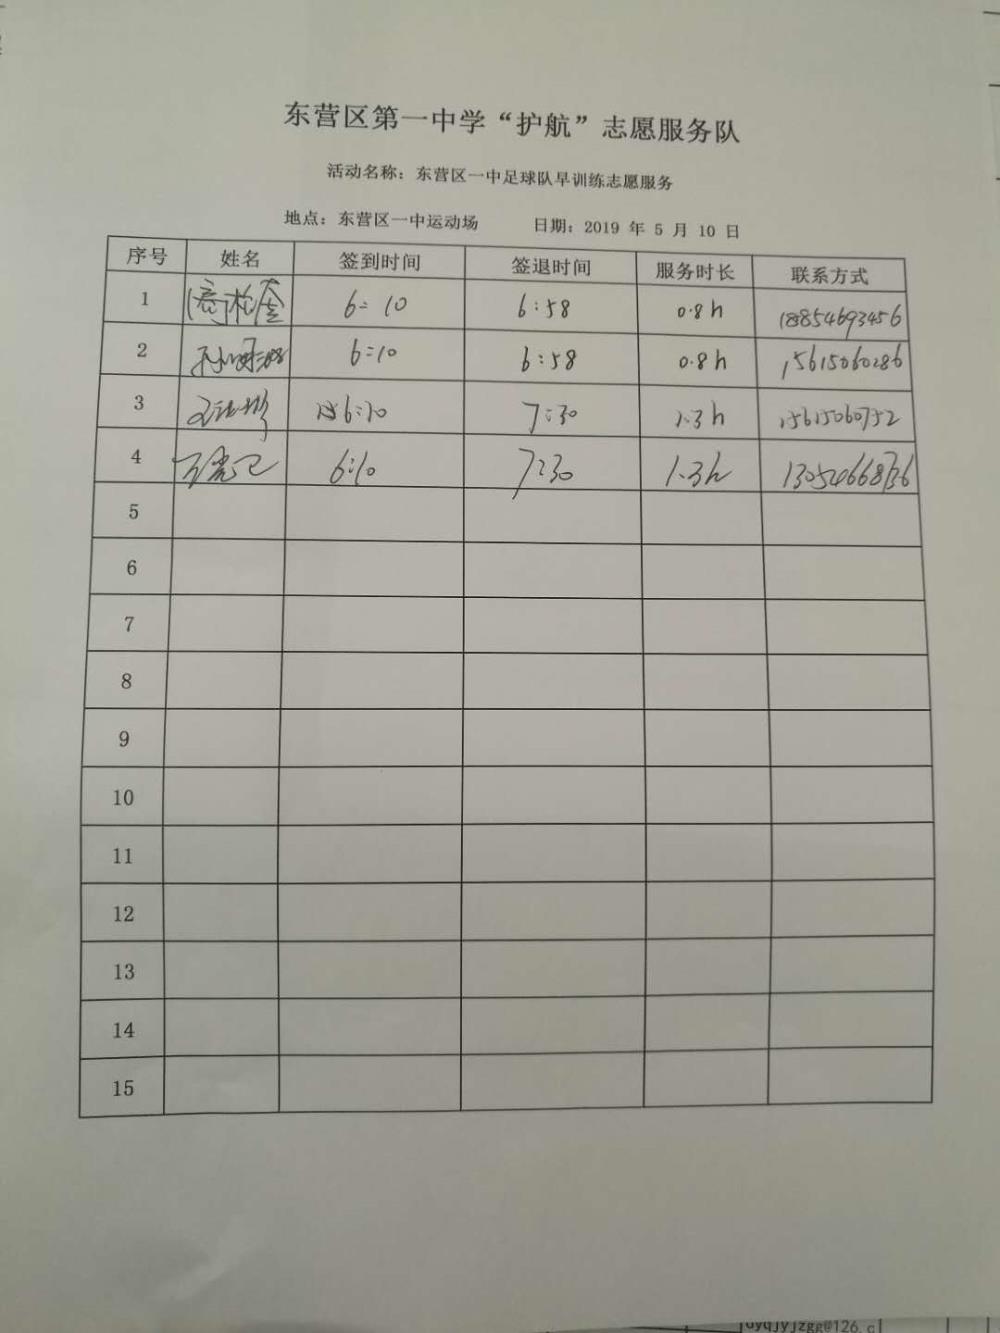 东营区第一中学“护航”志愿服务队
活动名称：东营区一中足球队早训练志愿服务
地点：东营区一中运动场 日期：2019 年 5 月 10 日
序号 姓名 签到时间 签退时间 服务时长 联系方式
1 6:10 6:58 0.8h 18854693456
2 6:10 6:58 0.8h 15615060286
3 6:10 7:30 1.3h 15615060752
4 6:10 7:30 1.3h
5
6
7
8
9
10
11
12
13
14
15
dyqjyjzgg@126.c